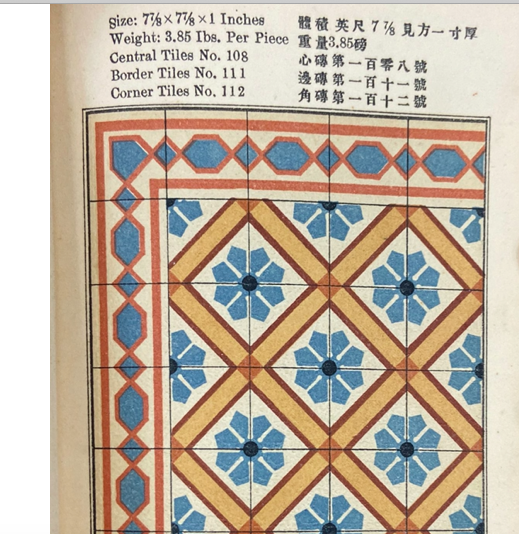 Size: 7⅞×7⅞×1 Inches
Weight: 3.85 Ibs. Per Piece
Central Tiles No. 108
Border Tiles No. 111
Corner Tiles No. 112
體積英尺7⅞見方一寸厚
重量3.85磅
心磚第一百零八號
邊磚第一百十一號
角磚第一百十二號